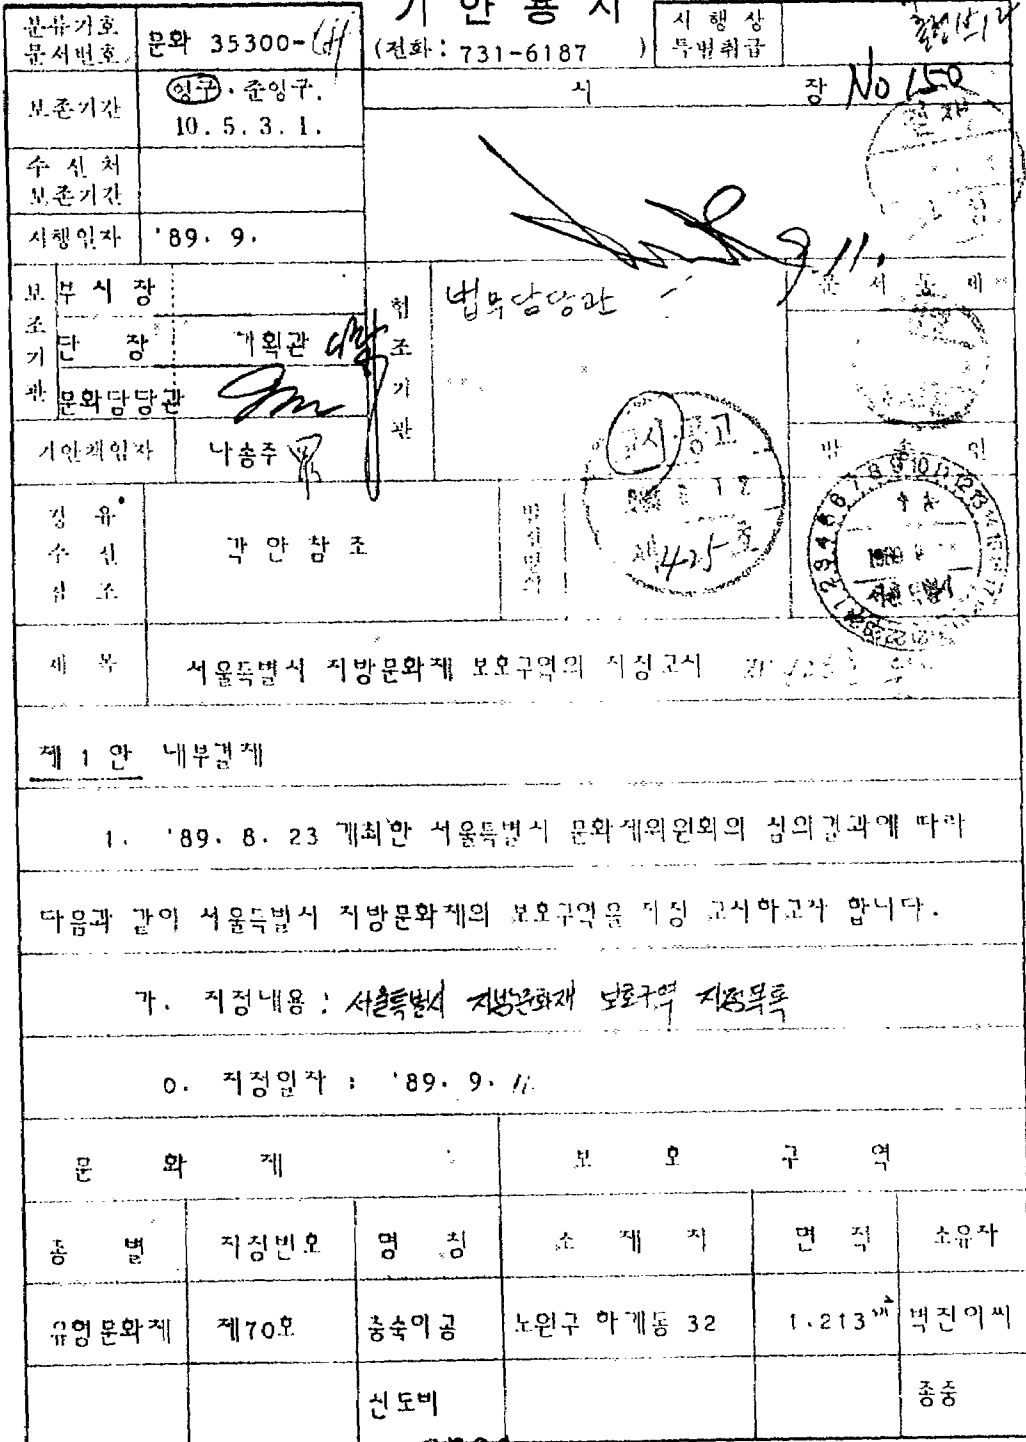 기 안 용 지
분류기호
문서번호
문화 35300-
(전화: 731-6187 )
시 행 상
특별취급
보존기간
영구. 준영구.
10. 5. 3. 1.
시 장 No 150
수 신 처
보존기간
시행일자 '89. 9.
9. 11.
보조기관
부 시 장
단 장 기획관
문화담당관
기안책임자 나송주
협조기관
법무담당관
문 서 통 제
고시·공고
제425호
발 송 인
경 유
수 신
참 조
각 안 참 조
발신명의
제 목 서울특별시 지방문화재 보호구역의 지정고시
제 1 안 내부결재
1. '89. 8. 23 개최한 서울특별시 문화재위원회의 심의결과에 따라
다음과 같이 서울특별시 지방문화재의 보호구역을 지정 고시하고자 합니다.
가. 지정내용 : 서울특별시 지방문화재 보호구역 지정목록
0. 지정일자 : '89. 9. 11.
문 화 재 보 호 구 역
종 별 지정번호 명 칭 소 재 지 면 적 소유자
유형문화재 제70호 충숙이공 노원구 하계동 32 1.213㎡ 벽진이씨
신도비 종중